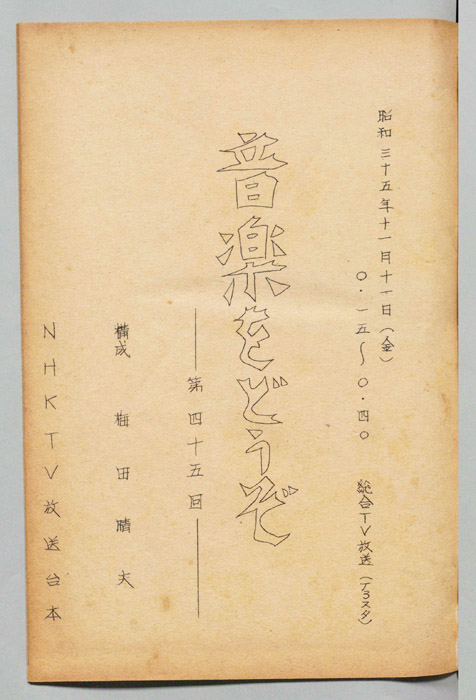 昭和三十五年十一月十一日(金)
〇・一五〜〇・四〇
総合TV放送(T3スタ)
音楽をどうぞ
第四十五回
構成 梅田晴夫
NHKTV放送台本